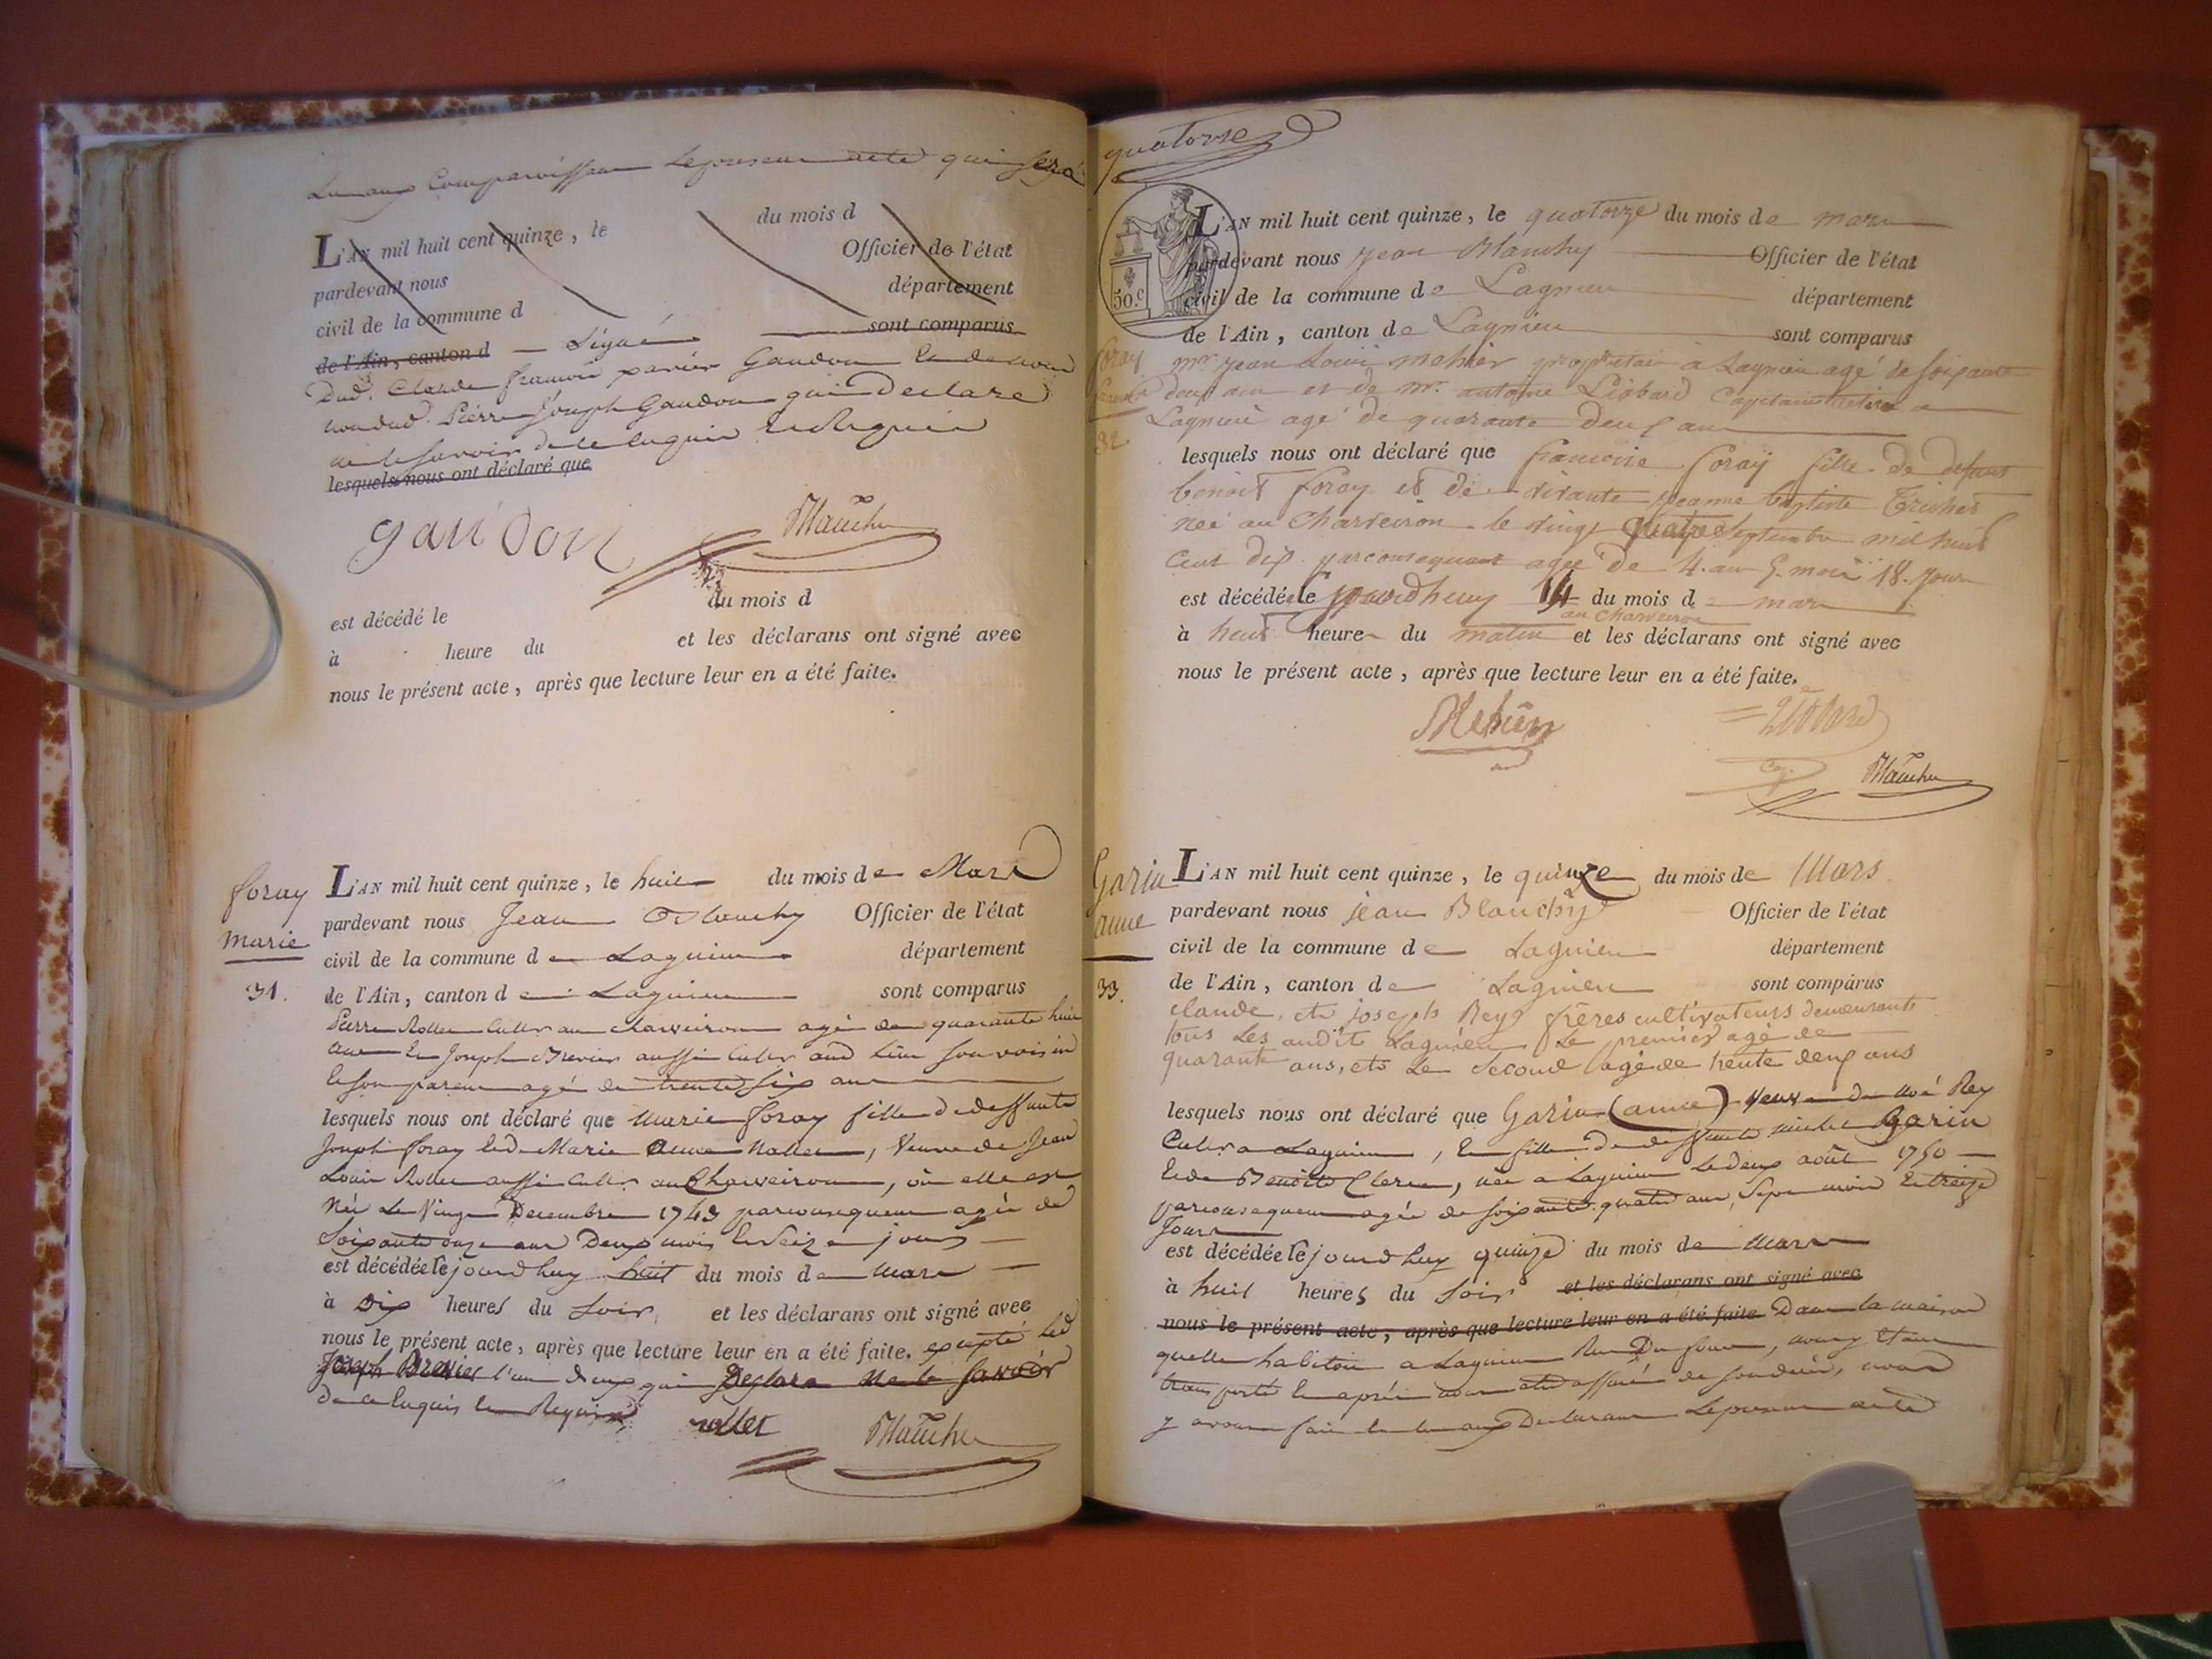 Lu aux Comparaissans le présent acte qui sera
L'AN mil huit cent quinze, le du mois d
pardevant nous Officier de l'état
civil de la commune d département
de l'Ain, canton d Signé sont comparus
Dud. Claude françois Gaudon et de nous
non dud. Pierre Joseph Gaudon qui Declare
ne le savoir de ce enquis et Requis
lesquels nous ont déclaré que
gaudon Blanchy
est décédé le du mois d
à heure du et les déclarans ont signé avec
nous le présent acte, après que lecture leur en a été faite.
foray
marie
31.
L'AN mil huit cent quinze, le huit du mois de Mars
pardevant nous Jean Blanchy Officier de l'état
civil de la commune de Lagnieu département
de l'Ain, canton de Lagnieu sont comparus
Pierre Rollet culter au charveiron agé de quarante huit
ans et Joseph Brevier aussi culter aud lieu son voisin
et son parent agé de trente six ans
lesquels nous ont déclaré que Marie foray fille de deffunts
Joseph foray et de Marie Anne , Veuve de Jean
Louis Rollet aussi culter au Charveiron, où elle est
née le Vingt Decembre 1743 parconsequent agée de
Soixante onze ans Deux mois et Seize jours
est décédée le jourd huy huit du mois de Mars
à Dix heures du soir et les déclarans ont signé avec
nous le présent acte, après que lecture leur en a été faite. excepté led
Joseph Brevier l'un deux qui Declare ne le savoir
de ce enquis et Requis rollet Blanchy
quatorze
50.c
L'AN mil huit cent quinze, le quatorze du mois de mars
pardevant nous jean Blanchy Officier de l'état
civil de la commune de Lagnieu département
de l'Ain, canton de Lagnieu sont comparus
foray
32
mr. jean Louis mehier propriétaire à Lagnieu agé de soixante
deux ans et de mr. antoine Liobard Capitaine retiré a
Lagnieu agé de quarante deux ans
lesquels nous ont déclaré que francoise foray fille de defunt
benoit foray et de vivante jeanne baptiste Trichet
neé au Charveiron le vingt quatre septembre mil huit
Cent dix parconsequent agée de 4. ans 5. mois 18. jours
est décédée le jourdhuy 14 du mois de mars
au charveiron
à huit heures du matin et les déclarans ont signé avec
nous le présent acte, après que lecture leur en a été faite.
Mehier Liobard
Cap. Blanchy
Garin
anne
33.
L'AN mil huit cent quinze, le quinze du mois de Mars
pardevant nous jean Blanchy Officier de l'état
civil de la commune de Lagnieu département
de l'Ain, canton de Lagnieu sont comparus
claude, et joseph Rey frères cultivateurs demeurants
tous les audit Lagnieu Le premier agé de
quarante ans, et Le second agé de trente deux ans
lesquels nous ont déclaré que Garin (anne) veuve de Rey
Culter a Lagnieu, et fille de deffunts Garin
et de Benoite Clerc, née a Lagnieu le deux août 1750
parconsequent agée de soixante quatre ans, Sept mois et treize
Jours
est décédée le jourd huy quinze du mois de Mars
à huit heures du soir et les déclarans ont signé avec
nous le présent acte, après que lecture leur en a été faite Dans la maison
quelle habitoit a Lagnieu Rue Du four, nous y étant
transporté et après nous etre assuré de son décès, nous
y avons fait et lu aux Declarans le présent acte